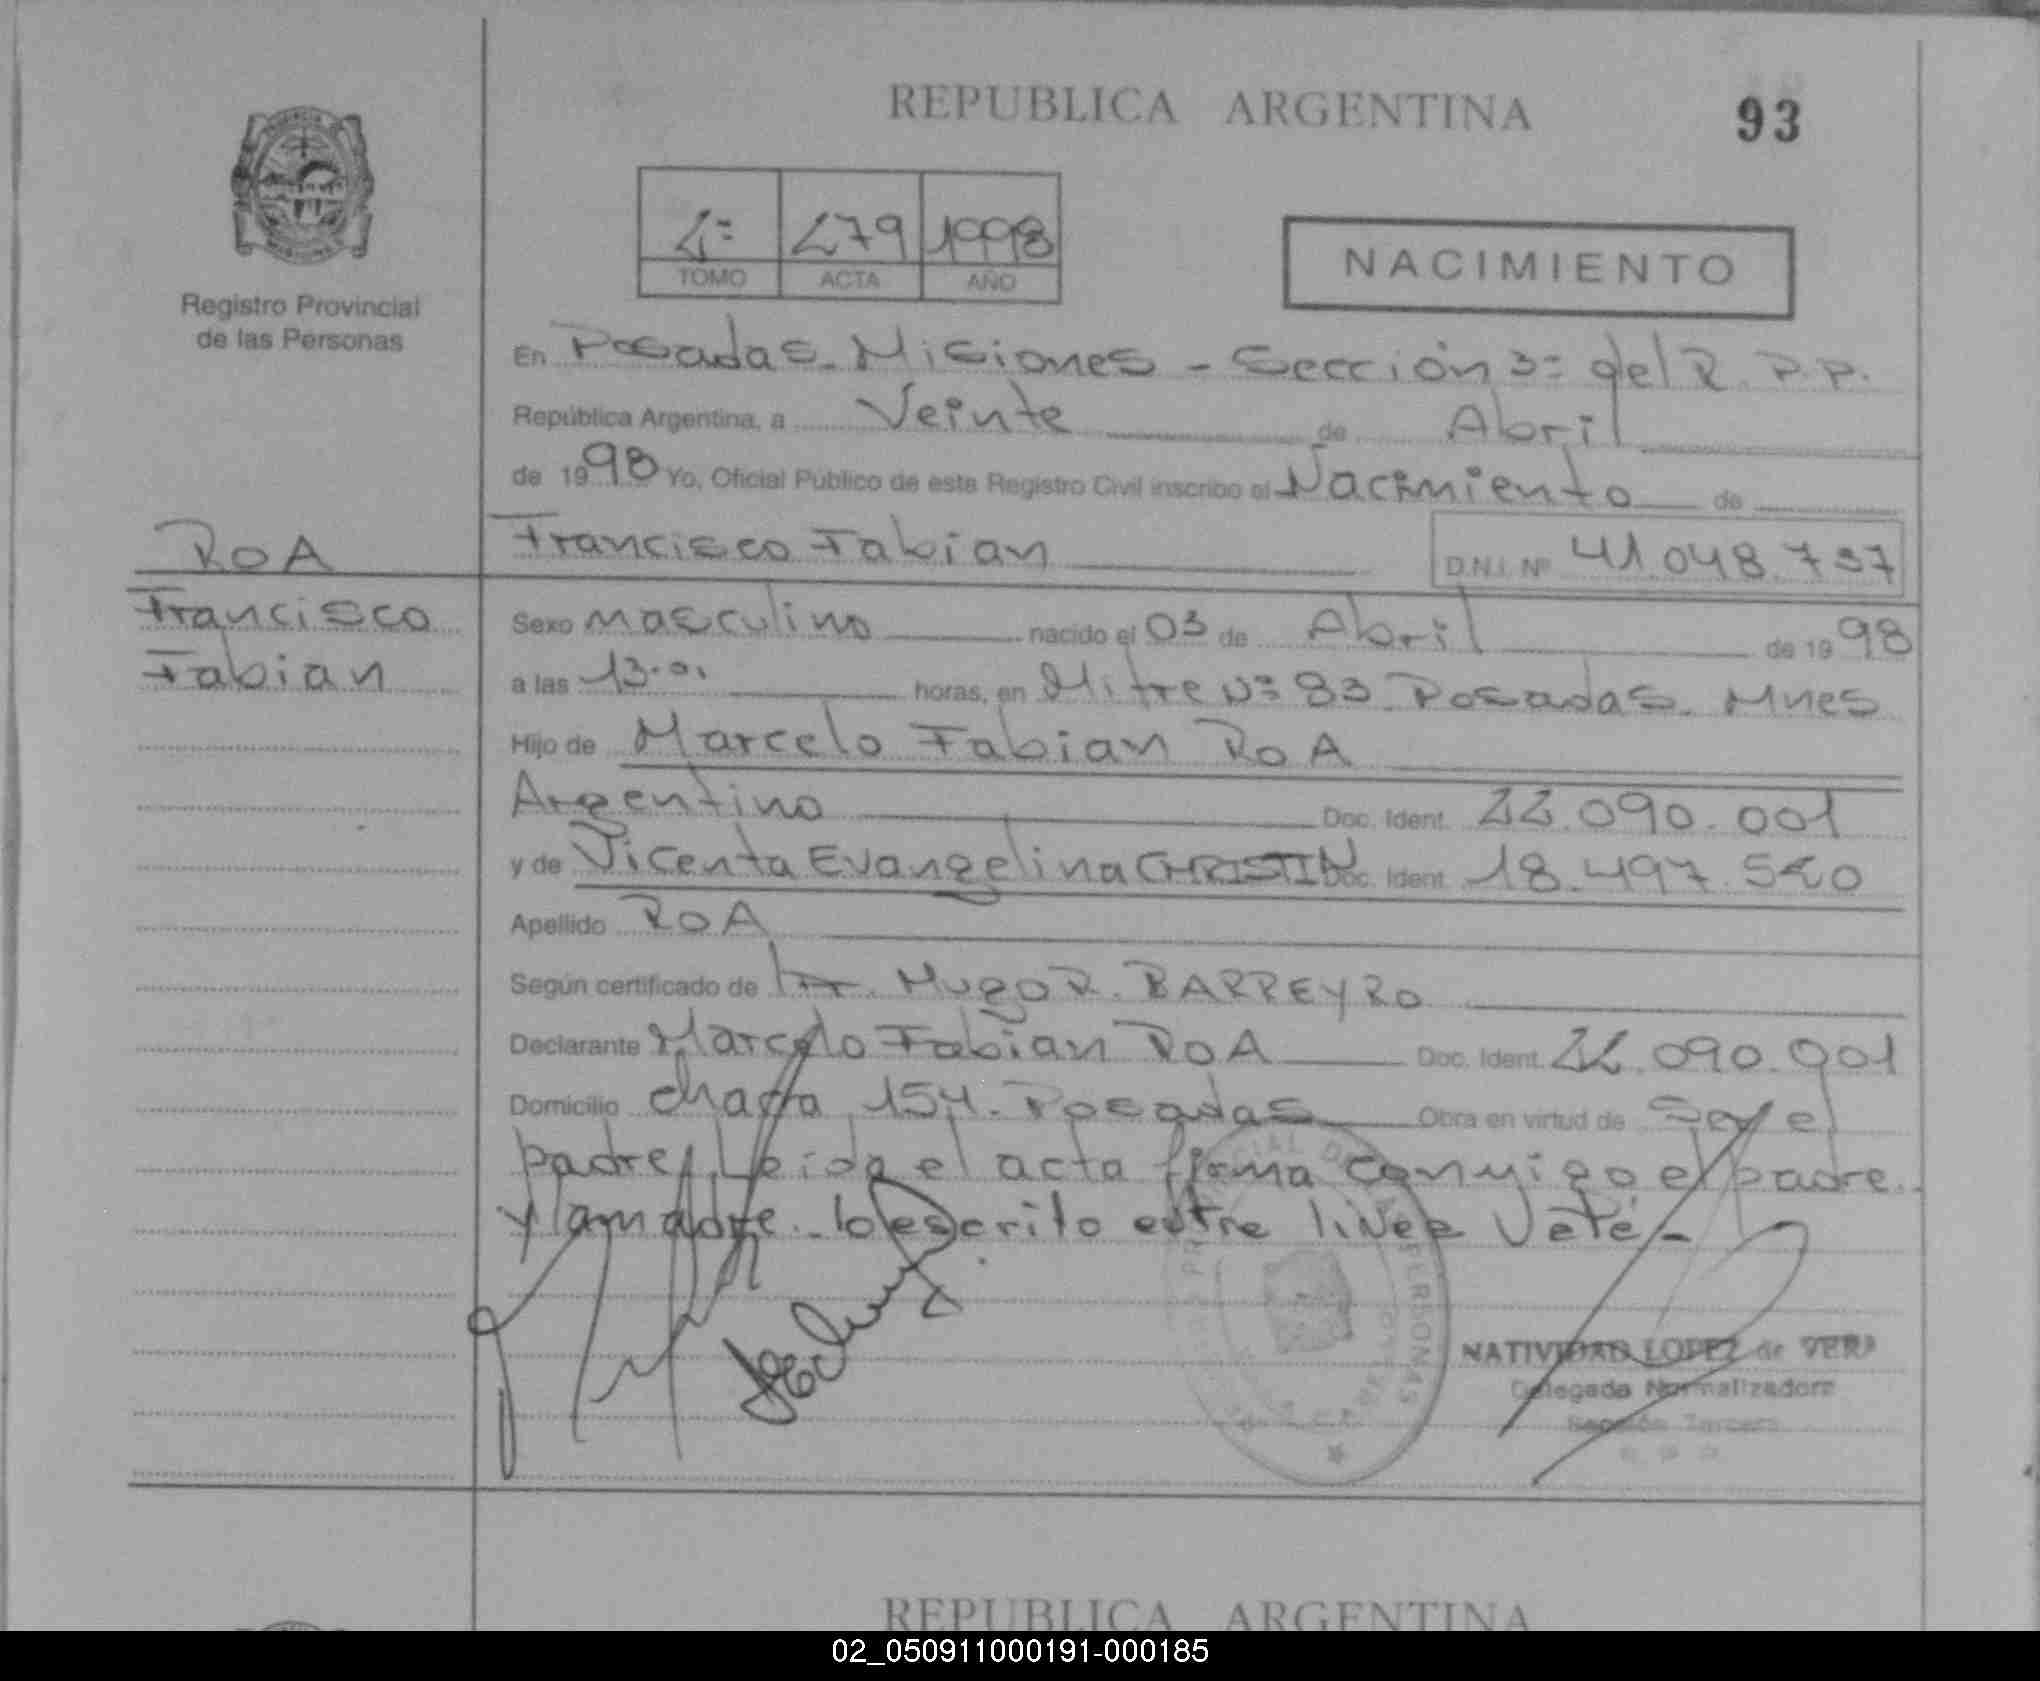 REPUBLICA ARGENTINA
93
2º 279 1998
TOMO ACTA AÑO
NACIMIENTO
Registro Provincial
de las Personas
En Posadas. Misiones - Sección 3º del R. P. P.
República Argentina, a Veinte de Abril
de 1998 Yo, Oficial Público de este Registro Civil inscribo el Nacimiento de
ROA
Francisco Fabian D.N.I. Nº 41.048.737
Francisco
Fabian
Sexo masculino nacido el 03 de Abril de 1998
a las 13.0. horas, en Mitre Nº 83. Posadas. Mnes
Hijo de Marcelo Fabian ROA
Argentino Doc. Ident. 22.090.001
y de Vicenta Evangelina CHRISTIN Doc. Ident. 18.497.520
Apellido ROA
Según certificado de Dr. Hugo R. BARREYRO
Declarante Marcelo Fabian ROA Doc. Ident. 22.090.001
Domicilio chacra 154. Posadas Obra en virtud de Ser el
padre Leida el acta firma conmigo el padre
y la madre. lo escrito entre linea Vale -
NATIVIDAD LOPEZ de VERA
Delegada Normalizadora
Sección Tercera
REPUBLICA ARGENTINA
02_050911000191-000185